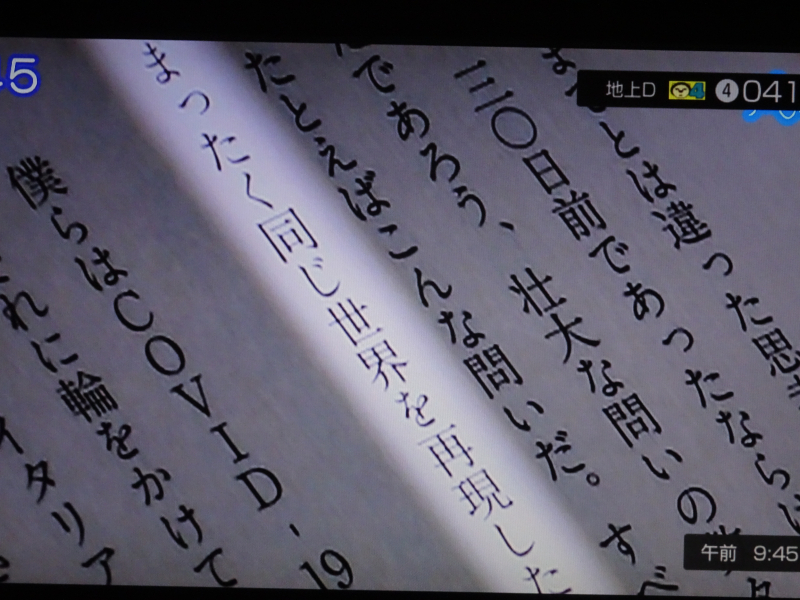 45
地上D 4 4 041
とは違った思
三〇日前であったならば
であろう、壮大な問いの
たとえばこんな問いだ。すべ
まったく同じ世界を再現した
僕らはCOVID-19
れに輪をかけて
イタリア
午前 9:45